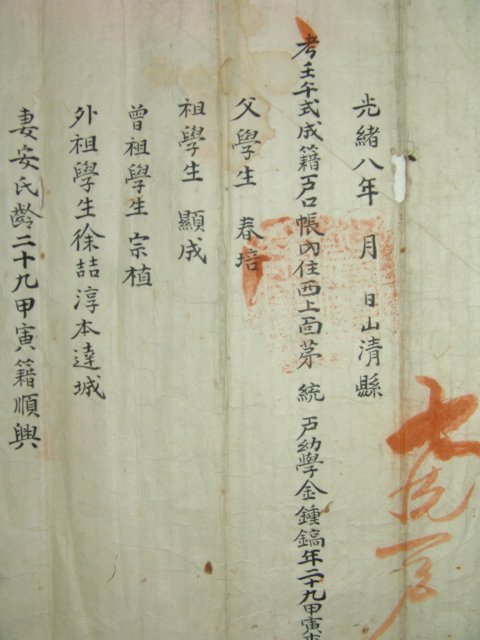 光緒八年 月 日山清縣
考壬午式成籍戶口帳內住西上面茅 統 戶幼學金鍾鎬年二十九甲寅本
父學生 春培
祖學生 顯成
曾祖學生 宗植
外祖學生徐喆淳本達城
妻安氏齡二十九甲寅籍順興